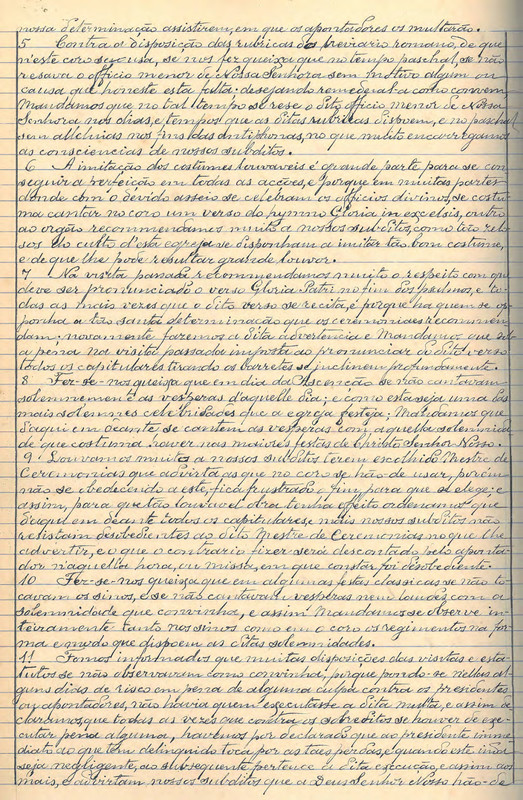 nossa determinação assistirem, em que os apontadores os multarão.
5 Contra a disposição das rubricas do breviario romano, de que
n'este coro se usa, se nos fez queixa que no tempo paschal, se não
resava o officio menor de Nossa Senhora sem motivo algum ou
causa que honeste esta falta: desejando remedeal-a como convem,
Mandamos que no tal tempo se rese o dito officio menor de Nossa
Senhora nos dias, e tempos que as ditas rubricas dispoem, e no paschal
sem alleluias nos fins das antiphonas, no que muito encarregamos
as consciencias de nossos subditos.
6 A imitação dos costumes louvaveis é grande parte para se con
seguir a perfeição em todas as acções, e porque em muitas partes
donde com o devido asseio se celebram os officios divinos, se costu
ma cantar no coro um verso do hymno Gloria in excelsis, outro
ao orgão recommendamos muito a nossos subditos, como tão zelo
sos do culto d'esta egreja se disponham a imitar tão bom costume,
e de que lhe pode resultar grande louvor.
7 Na visita passada recommendamos muito o respeito com que
deve ser pronunciado o verso Gloria Patri no fim dos psalmos, e to
das as mais vezes que o dito verso se recita, e porque ha quem se op
ponha a tão santa determinação que os ceremoniaes recommen
dam; novamente fazemos a dita advertencia e Mandamos que sob
a pena na visita passada imposta ao pronunciar do dito verso
todos os capitulares tirando os barretes se inclinem profundamente.
8 Fez-se-nos queixa que em dia da Ascenção se não cantavam
solemnemente as vesperas d'aquelle dia; e como esta seja uma das
mais solemnes celebridades que a egreja festeja; Mandamos que
d'aqui em deante se cantem as vesperas com aquella solemnida
de que costuma haver nas maiores festas de Christo Senhor Nosso.
9 Louvamos muito a nossos subditos terem escolhido Mestre de
Ceremonias que advirta as que no coro se hão-de usar, porém
não se obedecendo a este, fica frustrado o fim, para que se elege: e
assim, para que tão louvavel obra tenha effeito ordenamos que
d'aqui em deante todos os capitulares, e mais nossos subditos não
resistam desobedientes ao dito Mestre de Ceremonias no que lhe
advertir, e o que o contrario fizer será descontado pelo aponta
dor n'aquella hora, ou missa, em que constar foi desobediente.
10 Fez-se-nos queixa que em algumas festas classicas se não to
cavam os sinos, e se não cantavam vesperas nem laudes, com a
solemnidade que convinha, e assim Mandamos se observe in
teiramente tanto nos sinos como em o coro os regimentos na for
ma e modo que dispoem as ditas solemnidades.
11 Fomos informados que muitas disposições das visitas e esta
tutos se não observavam como convinha, porque pondo-se n'ellas al
guns dias de risco em pena de alguma culpa contra os presidentes
ou apontadores, não havia quem executasse a dita multa, e assim de
claramos, que todas as vezes que contra os sobreditos se houver de exe
cutar pena alguma, havemos por declarado que ao presidente imme
diato ao que tem delinquido toca por as taes perdas, e quando este inda
seja negligente, ao subsequente pertence a dita execução, e assim aos
mais, e advirtam, nossos subditos que a Deus Senhor Nosso hão-de